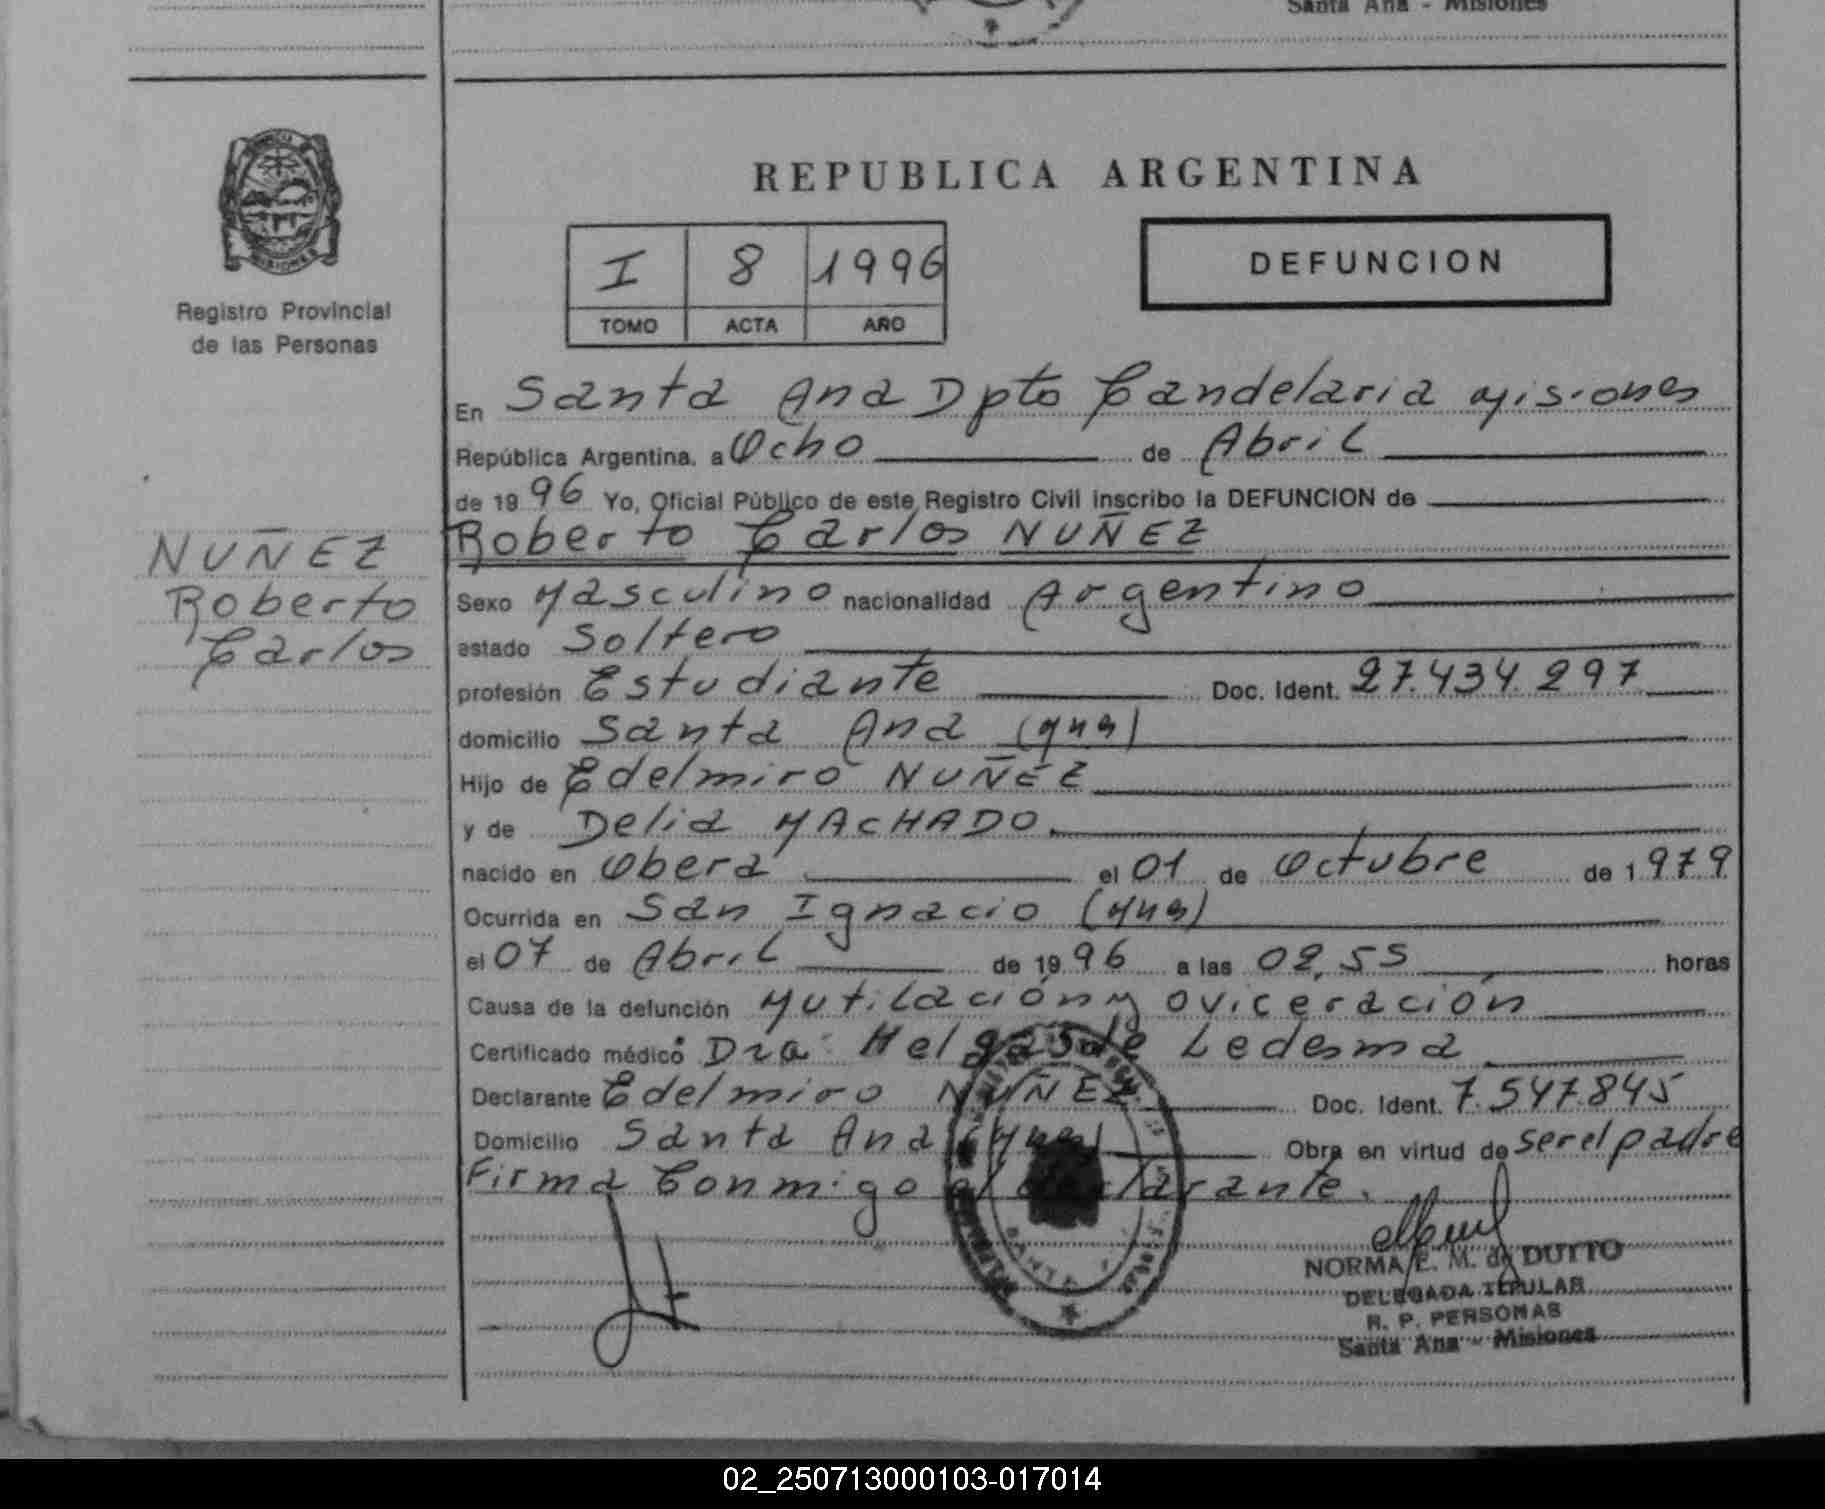 Santa Ana - Misiones
REPUBLICA ARGENTINA
I 8 1996
TOMO ACTA AÑO
DEFUNCION
Registro Provincial
de las Personas
MISIONES
NUÑEZ
Roberto
Carlos
En Santa Ana Dpto Candelaria Misiones
República Argentina, a Ocho de Abril
de 1996 Yo, Oficial Público de este Registro Civil inscribo la DEFUNCION de
Roberto Carlos NUÑEZ
Sexo Masculino nacionalidad Argentino
estado Soltero
profesión Estudiante Doc. Ident. 27.434.297
domicilio Santa Ana (Mns)
Hijo de Edelmiro NUÑEZ
y de Delia MACHADO
nacido en Obera el 01 de Octubre de 1979
Ocurrida en San Ignacio (Mns)
el 07 de Abril de 1996 a las 02,55 horas
Causa de la defunción Mutilación y oviceración
Certificado médico Dra. de Ledesma
Declarante Edelmiro NUÑEZ Doc. Ident. 7.547.845
Domicilio Santa Ana (Mns) Obra en virtud de ser el padre
Firma Conmigo el declarante.
NORMA E. M. de DUTTO
DELEGADA TITULAR
R. P. PERSONAS
Santa Ana - Misiones
SANTA
02_250713000103-017014